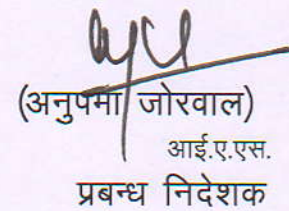 (अनुपमा जोरवाल)
आई.ए.एस.
प्रबन्ध निदेशक